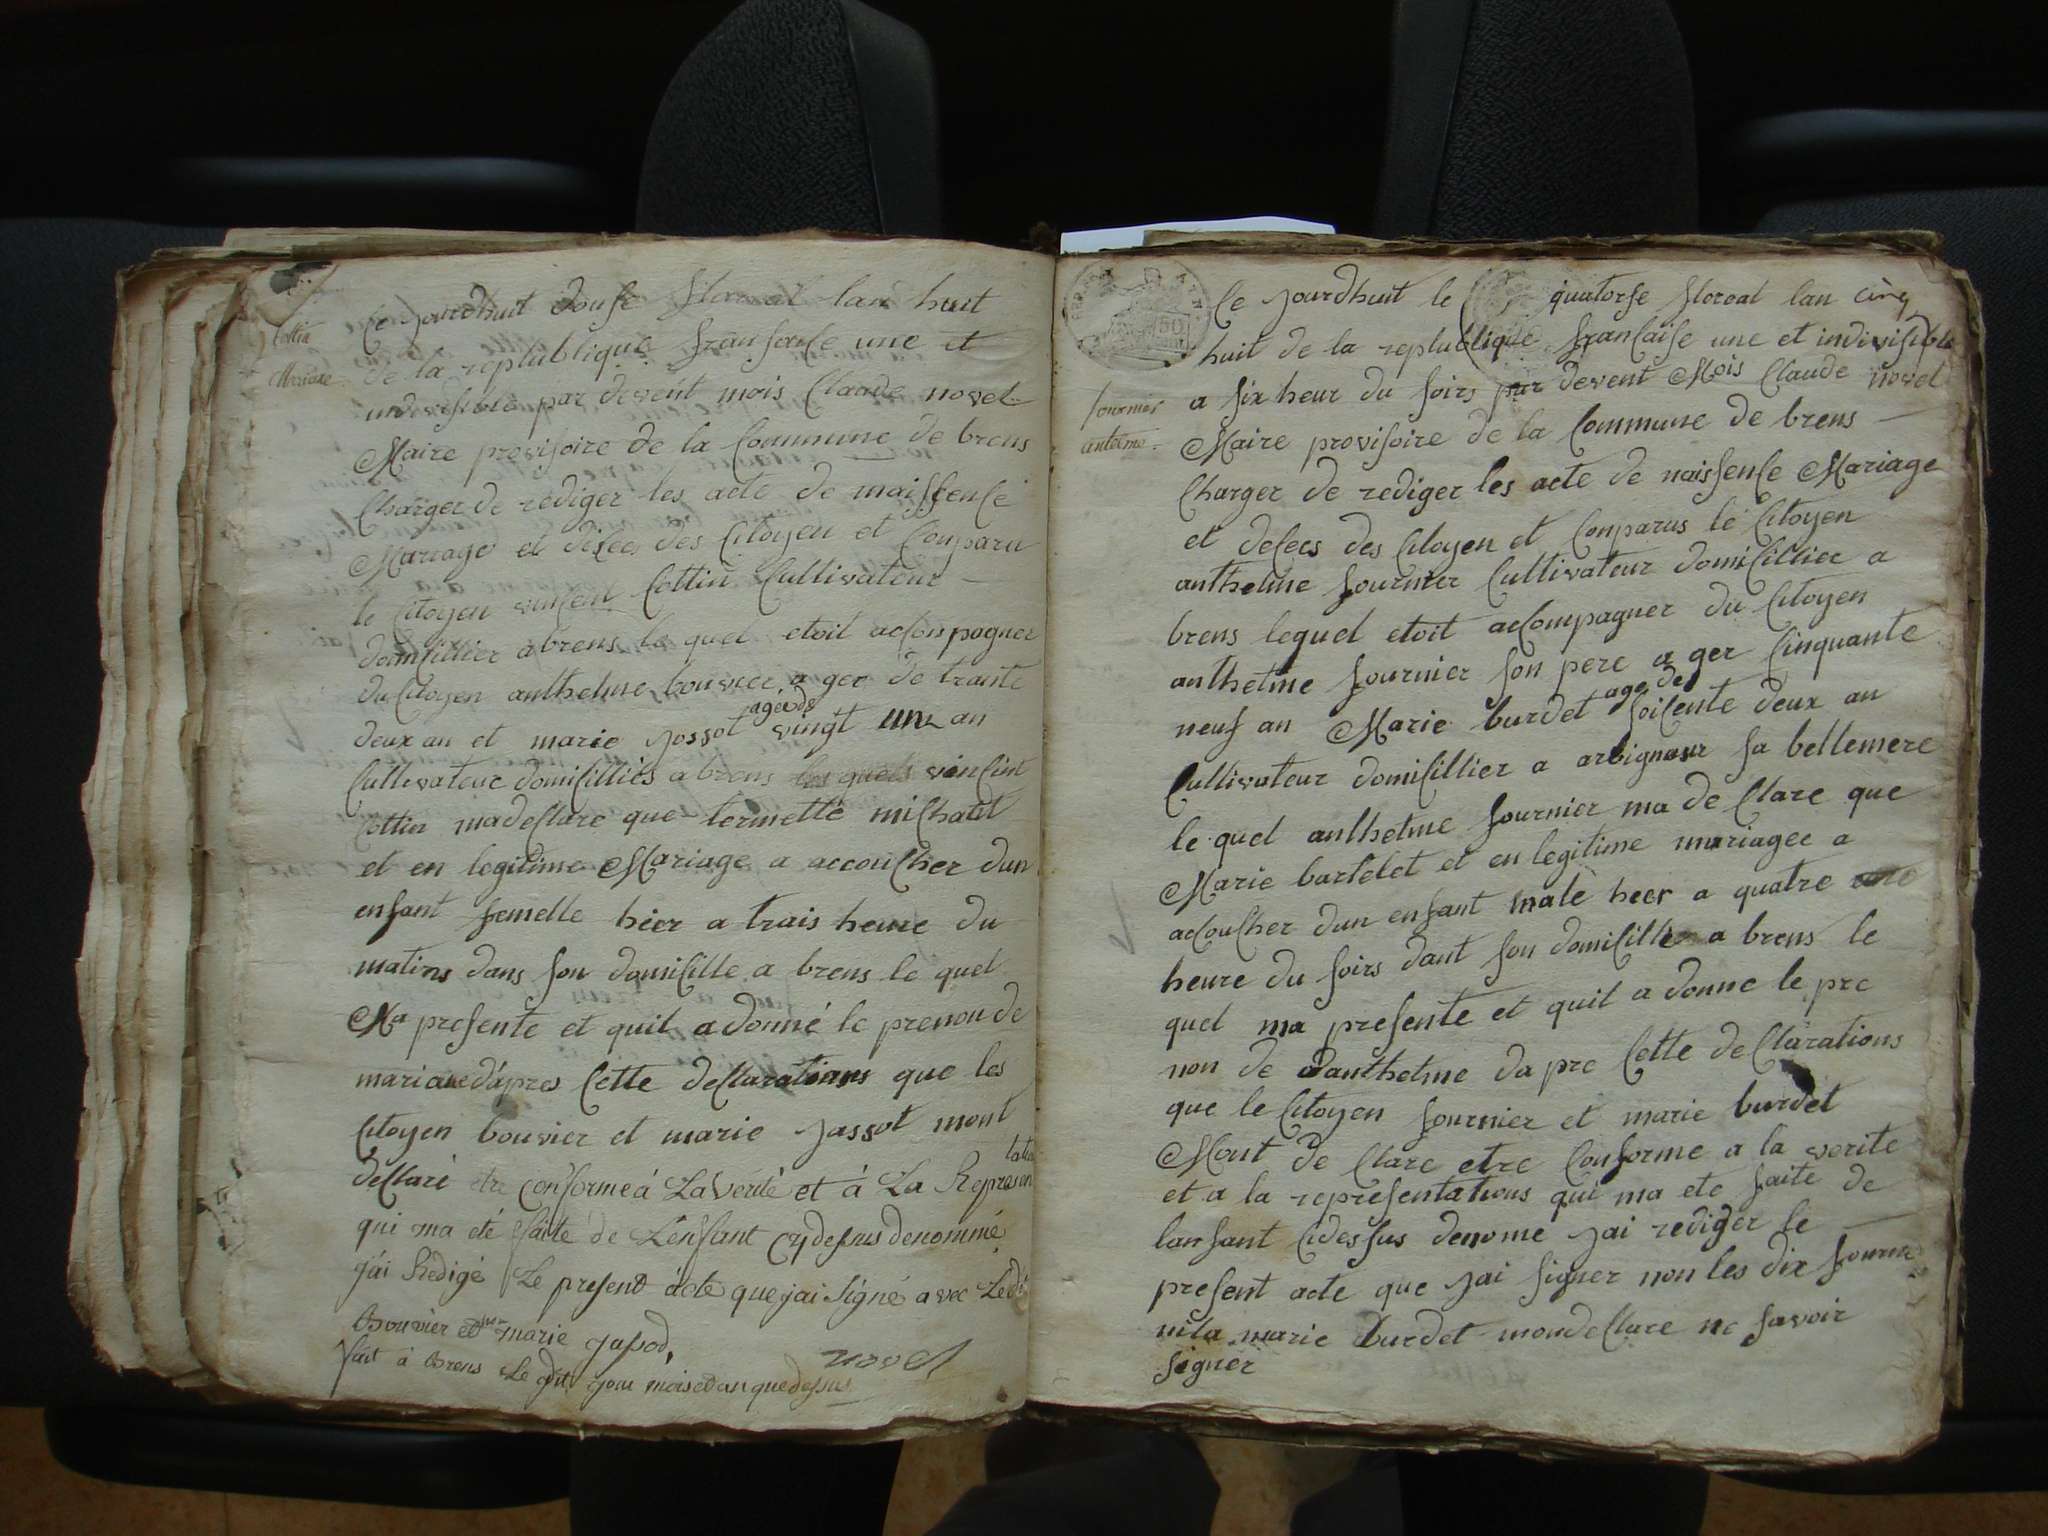 Cottin
Mariane
Ce jourdhuit douse floreal lan huit
de la replublique fransaise une et
indivisible par devent mois Claude novel
Maire provisoire de la Commune de brens
Charger de rediger les acte de naissence
Mariage et déces des Citoyen et Conparu
le Citoyen vincent Cottin Cultivateur
domicillier a brens le quel etoit accompagner
du Citoyen anthelme bouvier a ger de trante
deux an et marie jossot agé de vingt un an
Cultivateur domicilliés a brens les quels vincint
Cottin ma declare que lermette michalet
et en legitime Mariage a accoucher dun
enfant femelle hier a trais heure du
matins dans son domicille a brens le quel
Ma presente et quil a donné le prenon de
mariane d'apres Cette declarations que les
Citoyen bouvier et marie jassot mont
declaré etre conforme á La Verité et á La Represen
tation
qui ma eté faite de L'enfant Cy dessus denommé
j'ai Redigé Le present acte que jai Signé avec Ledi
Bouvier et marie japod,
fait á Brens Le dit jour mois et an que dessus
novel
50
fournier
antelme
Ce jourdhuit le quatorse floreal lan cinq
huit de la replublique francaise une et indivisible
a six heur du soirs par devent Mois Claude novel
Maire provisoire de la Commune de brens
Charger de rediger les acte de naissence Mariage
et deces des Citoyen et Conparus le Citoyen
anthelme fournier Cultivateur domicillier a
brens lequel etoit accompagner du Citoyen
anthelme fournier son pere a ger Cinquante
neuf an Marie burdet age de soicente deux an
Cultivateur domicillier a arbignieur sa bellemere
le quel anthelme fournier ma de Clare que
Marie bartelet et en legitime mariagee a
accoucher dun enfant male heer a quatre
heure du soirs dant son domicille a brens le
quel ma presente et quil a donne le pre
non de danthelme da pre Cette de Clarations
que le Citoyen fournier et marie burdet
Mont de Clare etre Conforme a la verite
et a la representations qui ma ete faite de
lanfant Cidessus denome jai rediger le
present acte que jai signer non les dix fournie
nila marie burdet mon declare ne savoir
signer